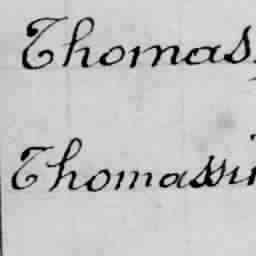 Thomas
Thomassi